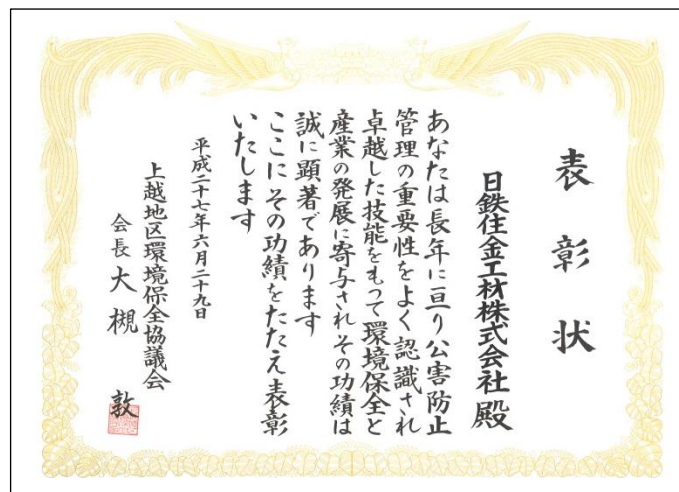 表彰状
日鉄住金工材株式会社 殿
あなたは長年に亘り公害防止
管理の重要性をよく認識され
卓越した技能をもつて環境保全と
産業の発展に寄与されその功績は
誠に顕著であります
ここにその功績をたたえ表彰
いたします
平成二十七年六月二十九日
上越地区環境保全協議会
会長 大槻 敦